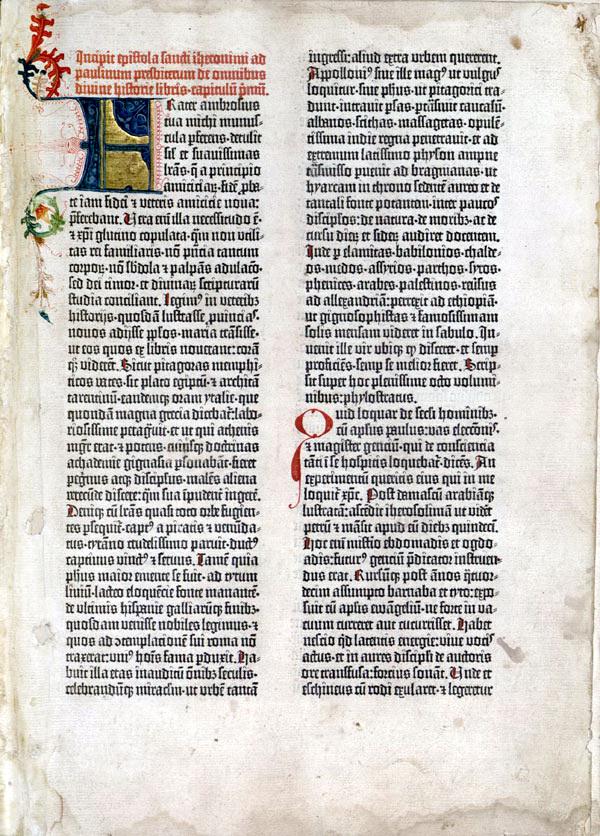 Incipit epistola sancti iheronimi ad
paulinum presbiterum de omnibus
divine historie libris. capitulū pmū.
Frater ambrosius
tua michi munus-
cula pferens. detulit
sił et suavissimas
lrās. q̄ a principio
amiciciaȝ. fidē pba-
te iam fidei ⁊ veteris amicicie nova:
pferebant. Vera em̄ illa necessitudo ē.
⁊ xp̄i glutino copulata. qm̄ non vtili-
tas rei familiaris. nō pn̄cia tantum
corpoꝝ. nō sbdola ⁊ palpās adulacō.
sed dei timor. et divinaꝝ scripturarū
studia conciliant. Legim⁹ in veteribꝫ
historijs. quosdā lustrasse. puincias.
novos adijsse pplos. maria trāsisse.
ut eos quos ex libris noverant: corā
qꝫ viderēt. Sicut pitagoras memphi-
ticos vates. sic plato egiptū. ⁊ architā
tarentinū. eandemqꝫ oram ytalie. que
quondā magna grecia dicebat̄: labo-
riosissime pagravit. et ut qui athenis
mgr̄ erat. ⁊ potens. cuiusqꝫ doctrinas
achademie gignasia psonabāt. fieret
pegrin⁹ atqꝫ discipulus. malēs aliena
verecunde discere: qm̄ sua īpudent̄ ingerē.
Deniqꝫ cū lrās quasi toto orbe fugien-
tes psequit̄. capt⁹ a piratis ⁊ venūda-
tus. tyrāno crudelissimo paruit. duct⁹
captivus vinct⁹ ⁊ servus. Tamē quia
phūs maior emente se fuit. ad tytum
livium. lacteo eloquencie fonte manantē.
de vltimis hispanie galliarūqꝫ finibꝫ.
quosdam venisse nobiles legimus. ⁊
quos ad ꝯtemplationē sui roma nō
traxerat: vni⁹ hoīs fama pduxit. Ha-
buit illa etas inauditū ōnibꝫ seculis.
celebrandūqꝫ miraclm̄. ut vrbē tantā
ingressi: aliud extra vrbem quererent.
Appollonī⁹ sive ille mag⁹ ut vulgus
loquitur. sive phūs. ut pitagorici tra-
dunt. intravit psas. ptrāsivit caucasū.
albanos. scithas. massagetas. opulē-
tissima indie regna penetravit. et ad
extremum latissimo physon ampne
trāsmisso pvenit ad bragmanas. ut
hyarcam in throno sedentē aureo. et de
tantali fonte potantem. inter paucos
discipulos: de natura. de moribꝫ. ac de
cursu dieꝝ et sideꝝ audiret docentem.
Inde p elamitas. babilonios. chalde-
os. medos. assyrios. parthos. syros.
phenices. arabes. palestinos. reversus
ad allexandriā: perrexit ad ethiopiā.
ut gignosophistas ⁊ famosissimam
solis mensam videret in sabulo. In-
venit ille vir vbiqꝫ qd̄ disceret. et semp
proficiens. semp se melior fieret. Scrip-
sit super hoc plenissime octo volumi-
nibus: phylostratus.
Quid loquar de seculi hominibꝫ.
cū apostolus paulus: vas electōnis.
⁊ magister genciū. qui de consciencia
tāti ī se hospitis loquebat̄. dicēs. An
experimentū queritis eius qui in me
loquit̄ xpc̄. Post damascū arabiāqꝫ
lustratā: ascēdit iherosolimā ut vidēt
petrū ⁊ māsit apud eū diebꝫ quindecī.
Hoc em̄ misterio ebdomadis et ogdo-
adis: futur⁹ genciū pdicator instruen-
dus erat. Rursūqꝫ post ānos q̄tuor-
decim assumpto barnaba et tyto: expo-
suit cū apostolis ewangeliū. ne forte in va-
cuum curreret aut cucurrisset. Habet
nescio qd̄ latentis energie: vive vocis
actus. et in aures discipuli de auctoris
ore transfusa: forcius sonat. Vnde et
eschineus cū rodi exularet. ⁊ legeretur